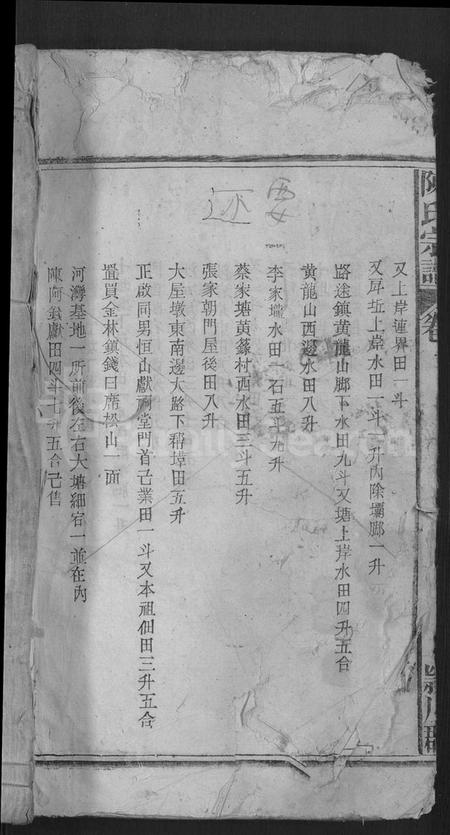 陳氏宗譜 卷
又上岸連界田一斗
又屛垃上岸水田一斗 升內除壩腳一升
路途鎮黃龍山腳下水田九斗又塘上岸水田四升五合
黃龍山西邊水田八升
李家壋水田一石五斗九升
蔡家塘黃蔴村西水田三斗五升
張家朝門屋後田八升
大屋墩東南邊大路下 埠田五升
正啟同男恒山獻祠堂門首己業田一斗又本祖佃田三升五合
置買金林鎮錢曰席松山一面
河灣基地一所前後左右大塘細宕一並在內
陳阿 獻田四斗七升五合己售